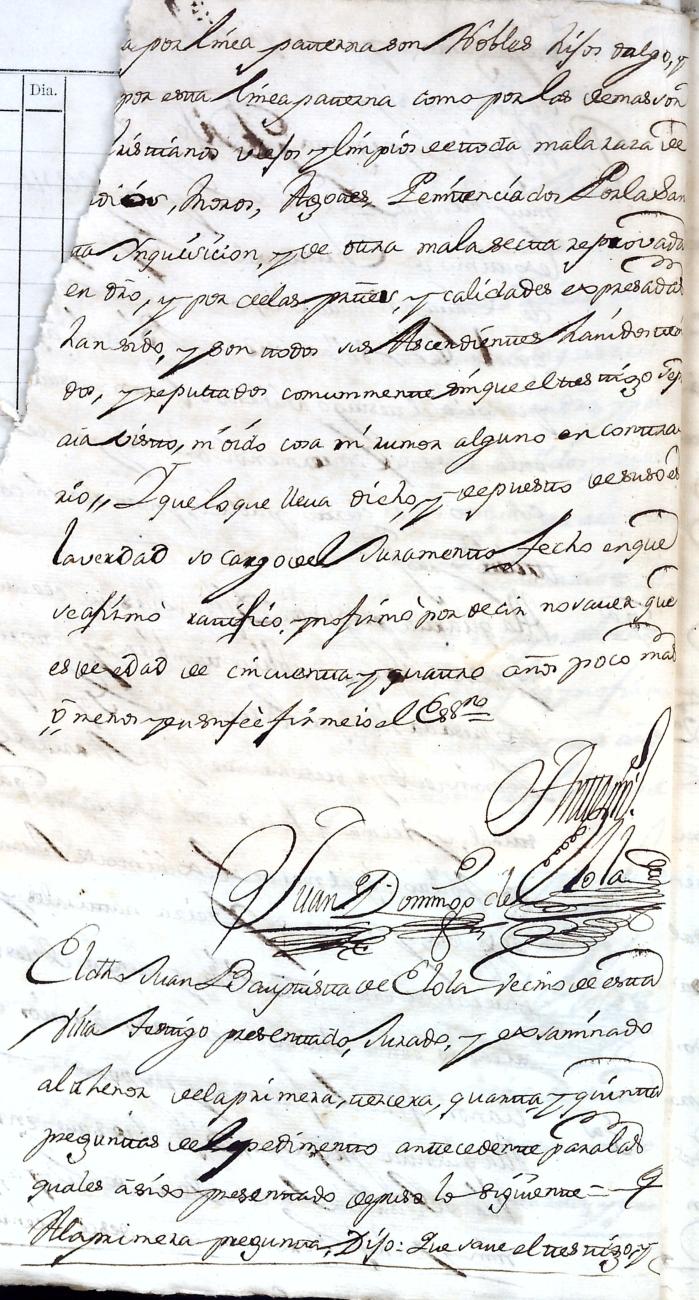 Dia.
a por línea patterna son Nobles hijos dalgo, y
por estta línea patterna como por las demas son
christianos viejos y limpios de ttoda mala raza de
Judios, Moros, Agotes, Penittenciados Por la San
tta Inquisicion, y de ottra mala sectta reprovada
en dro, y por de las parttes, y calidades expresadas
han sido, y son ttodos sus Ascendienttes havidos tteni
dos, y reputtados comunmentte sin que el testtigo
aia visto, ni oido cosa ni rumor alguno en conttra
rio,, I que lo que lleva dicho, y depuestto de suso es
la verdad so cargo del Juramentto fecho en que
se afirmò rattifico, y no firmò por decir no saver que
es de edad de cincuentta y quattro años poco mas
ò menos y en feè firme io el Essno
Antte mi
Juan Domingo de Elola
El dho Juan Bauptista de Elola Vecino de estta
Villa testtigo presenttado, Jurado, y examinado
al thenor de la primera, ttercera, quartta, y quintta
pregunttas del pedimentto antecedentte para las
quales à sido presenttado depuso lo siguientte =
A la primera preguntta, Dijo: Que save el testtigo, y